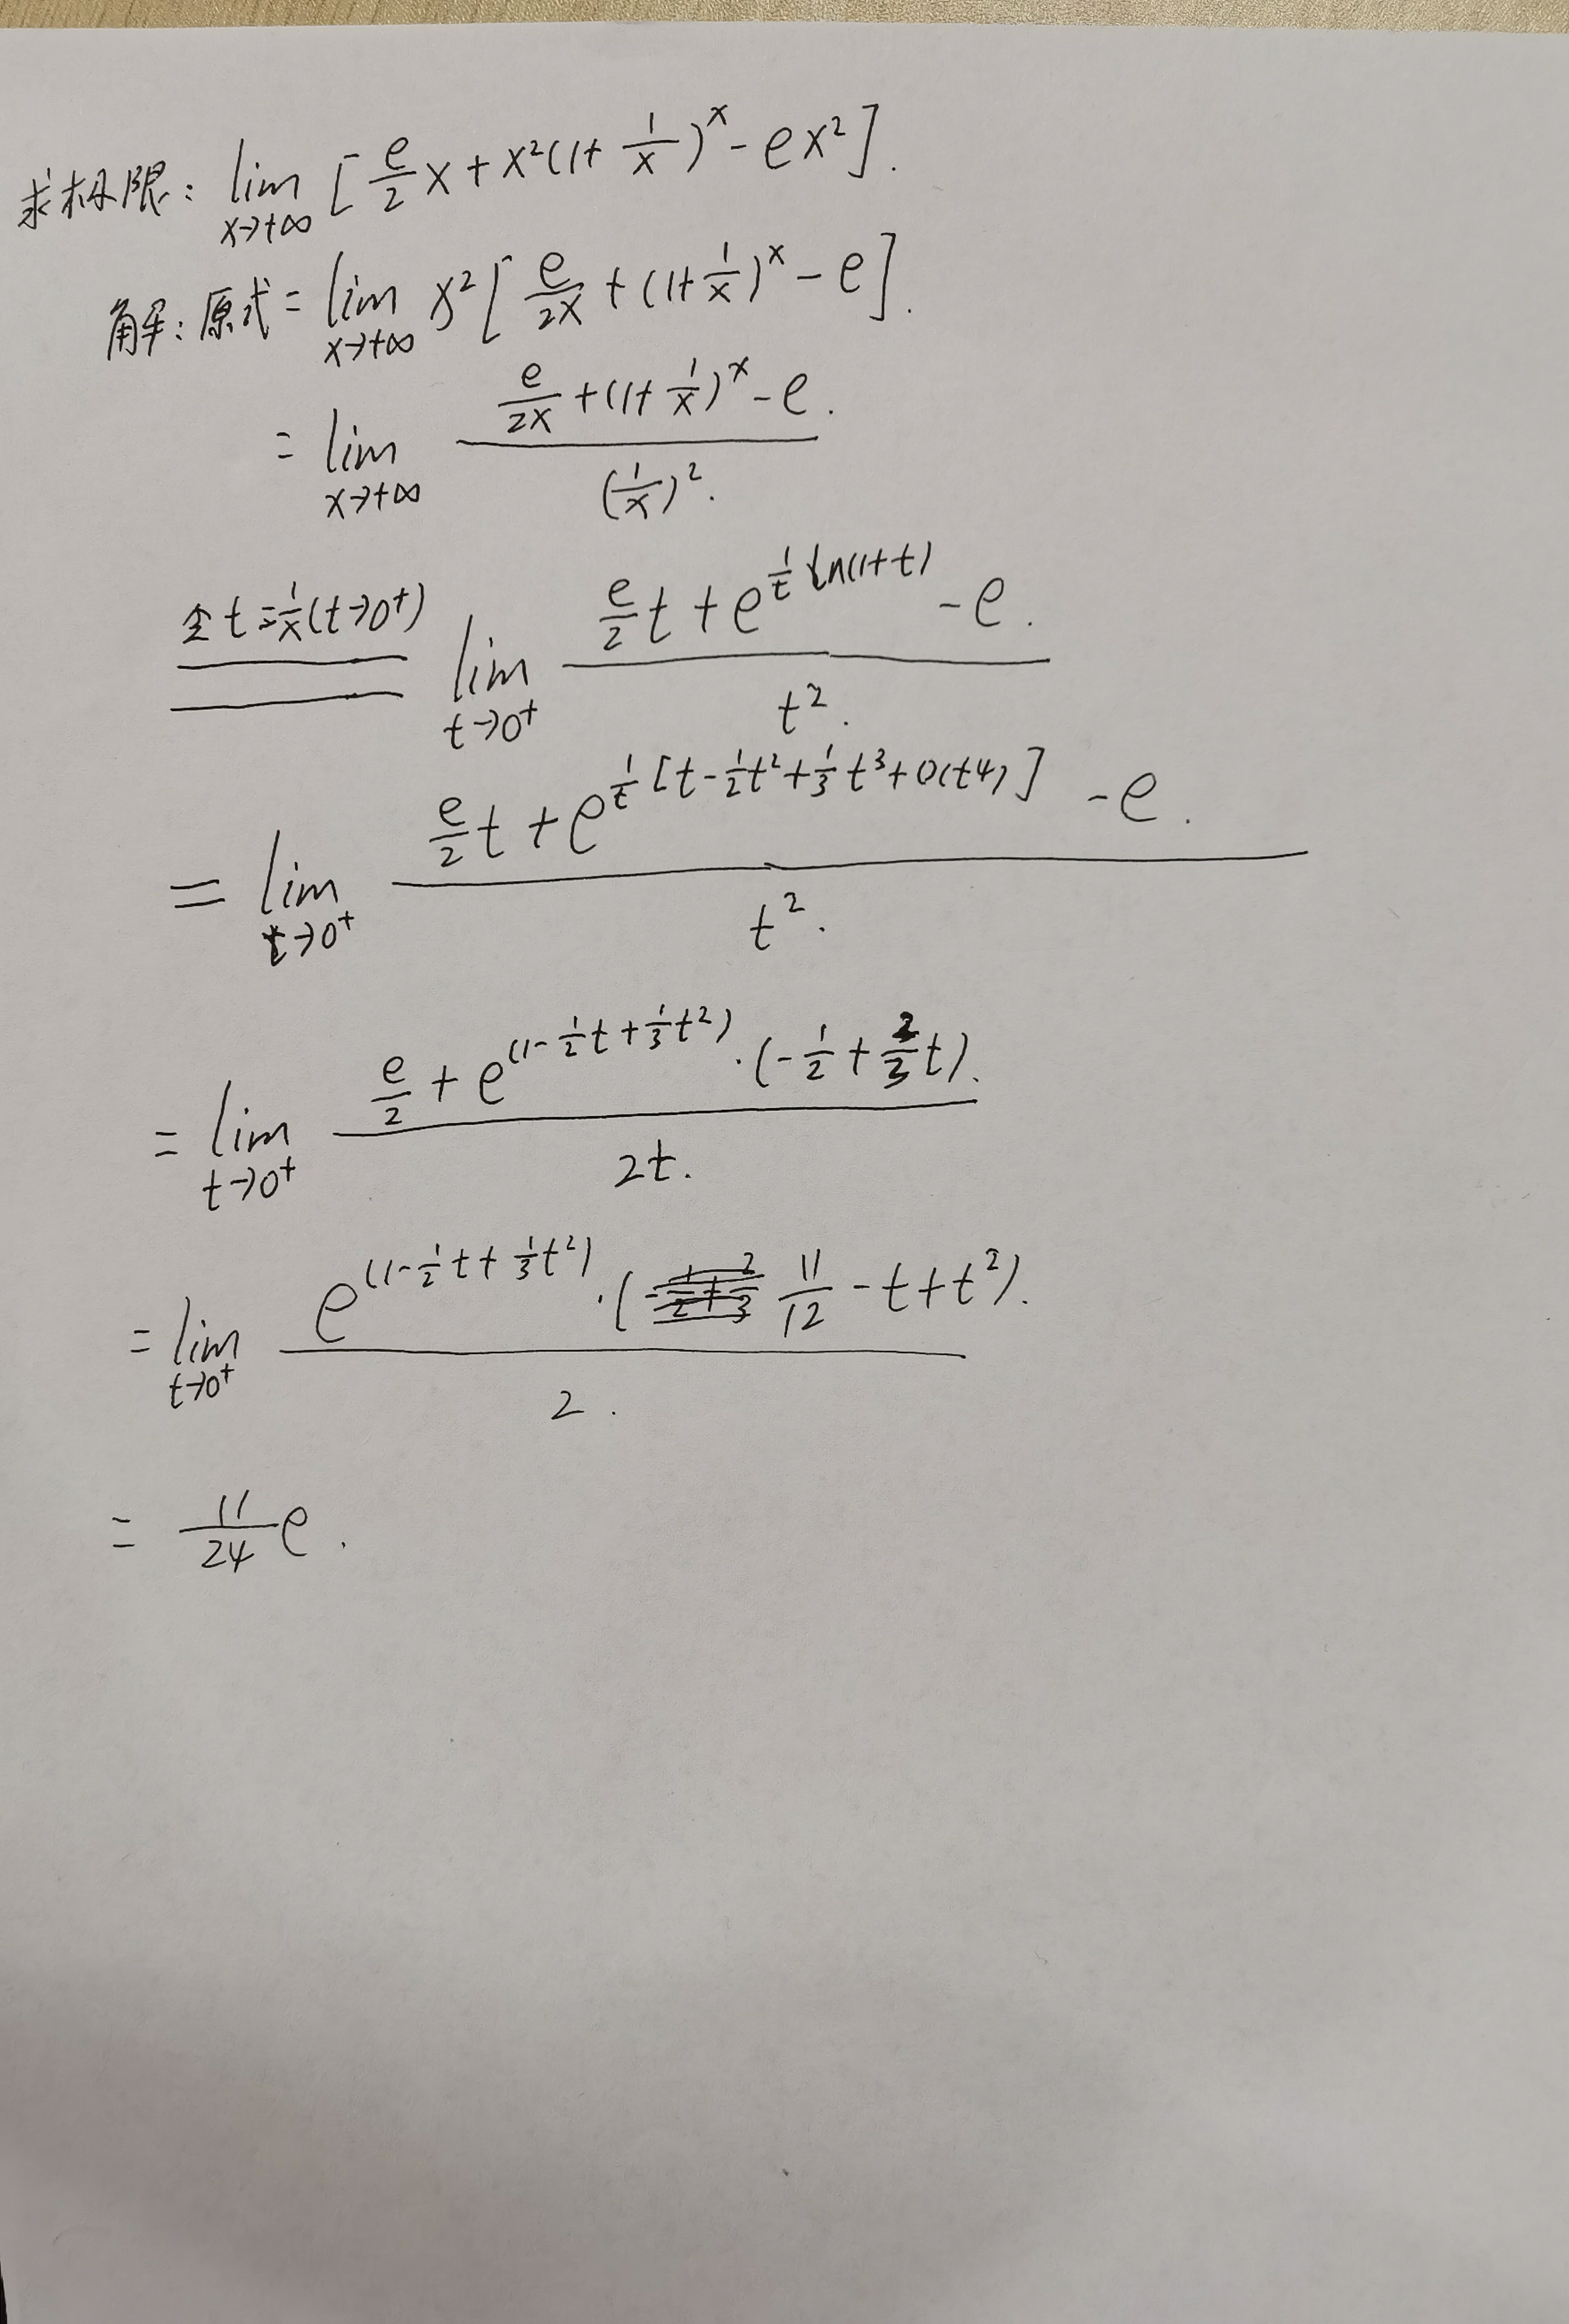 求极限: lim x→+∞ [e/2 x + x²(1+ 1/x)^x - ex²].
解: 原式 = lim x→+∞ x²[e/2x + (1+1/x)^x - e].
= lim x→+∞ (e/2x + (1+1/x)^x - e.)/((1/x)².)
令t=1/x(t→0⁺) lim t→0⁺ (e/2 t + e^(1/t ln(1+t)) - e.)/(t².)
= lim t→0⁺ (e/2 t + e^(1/t [t - 1/2 t² + 1/3 t³ + o(t⁴)]) - e.)/(t².)
= lim t→0⁺ (e/2 + e^(1 - 1/2 t + 1/3 t²) · (-1/2 + 2/3 t).)/(2t.)
= lim t→0⁺ (e^(1 - 1/2 t + 1/3 t²) · (11/12 - t + t²).)/(2.)
= 11/24 e.